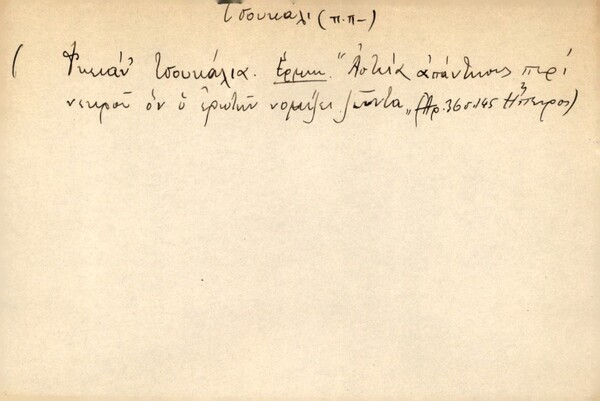 τσουκάλι (π.π-)
( Φκειάν' τσουκάλια. Ἑρμην. "Ἀστεία ἀπάντησις περί
νεκροῦ ὅν ὁ ἐρωτῶν νομίζει ζῶντα„ (Ἀρ. 36 σ. 145 Ἤπειρος)